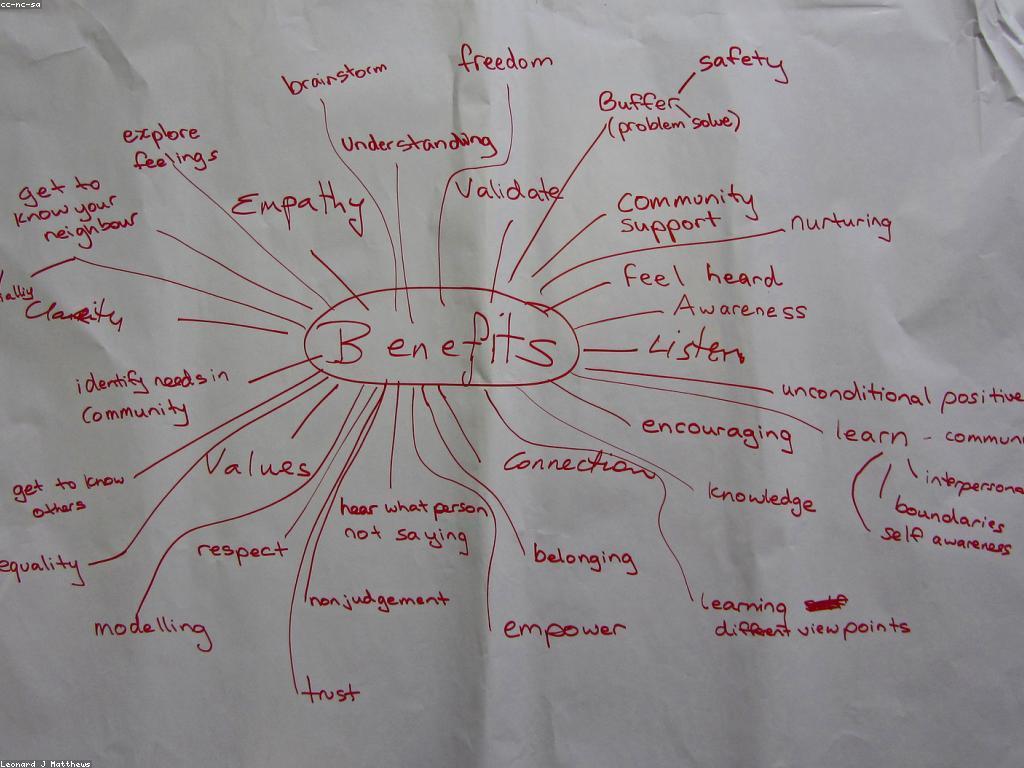 cc-nc-sa
freedom
safety
brainstorm
Buffer
(problem solve)
explore
feelings
Understanding
Validate
Empathy
get to
know your
neighbour
Community
support
nurturing
feel heard
Awareness
Clarity
Benefits
Listen
identify needs in
community
unconditional positive
encouraging
learn - commun
interpersona
boundaries
self awareness
Values
connection
knowledge
get to know
others
hear what person
not saying
respect
belonging
equality
nonjudgement
learning self
different viewpoints
modelling
empower
trust
Leonard J Matthews